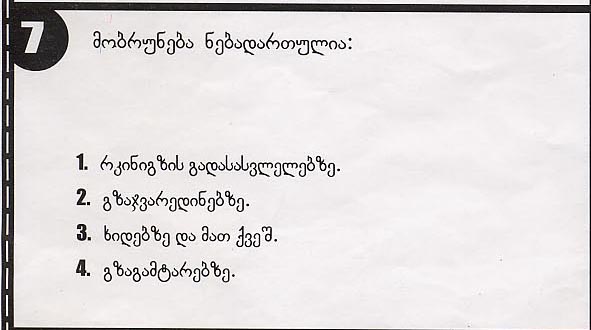 7
მობრუნება ნებადართულია:
1. რკინიგზის გადასასვლელებზე.
2. გზაჯვარედინებზე.
3. ხიდებზე და მათ ქვეშ.
4. გზაგამტარებზე.